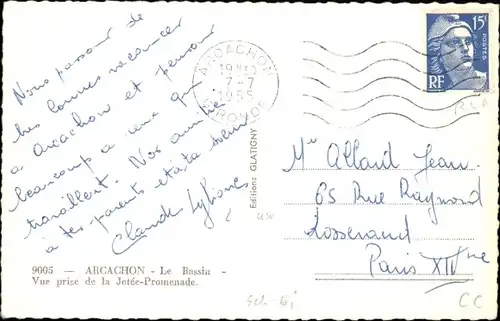 Nous passons de
très bonnes vacances
à Arcachon et pensons
beaucoup à ceux qui
travaillent. Nos amitiés
à tes parents et à ta sœur
Claude
ARCACHON
19H
7-7
1955
GIRONDE
15F
POSTES
RF
Editions GLATIGNY
Mr Allard Jean
65 Rue Raymond
Losserand
Paris XIVme
9005 — ARCACHON - Le Bassin -
Vue prise de la Jetée-Promenade.
CC